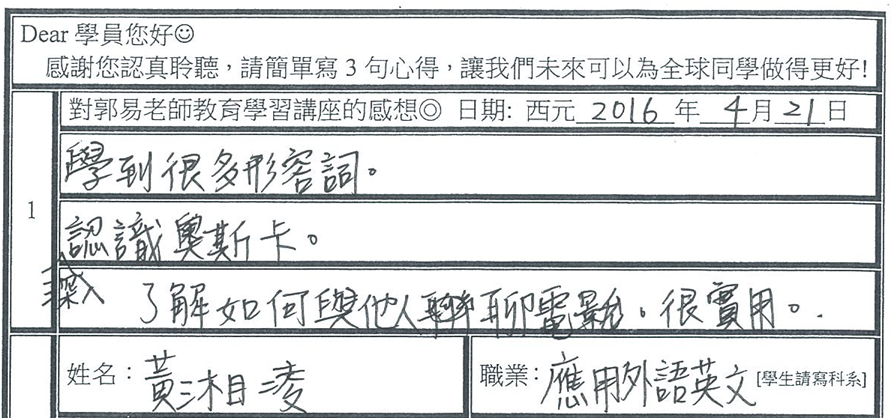 Dear 學員您好☺
感謝您認真聆聽，請簡單寫 3 句心得，讓我們未來可以為全球同學做得更好!
對郭易老師教育學習講座的感想◎ 日期: 西元 2016 年 4 月 21 日
1
學到很多形容詞。
認識奧斯卡。
深入了解如何與他人聊電影，很實用。
姓名：黃湘淩
職業：應用外語英文 [學生請寫科系]